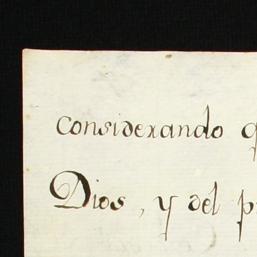 Considerando q
Dios, y del p